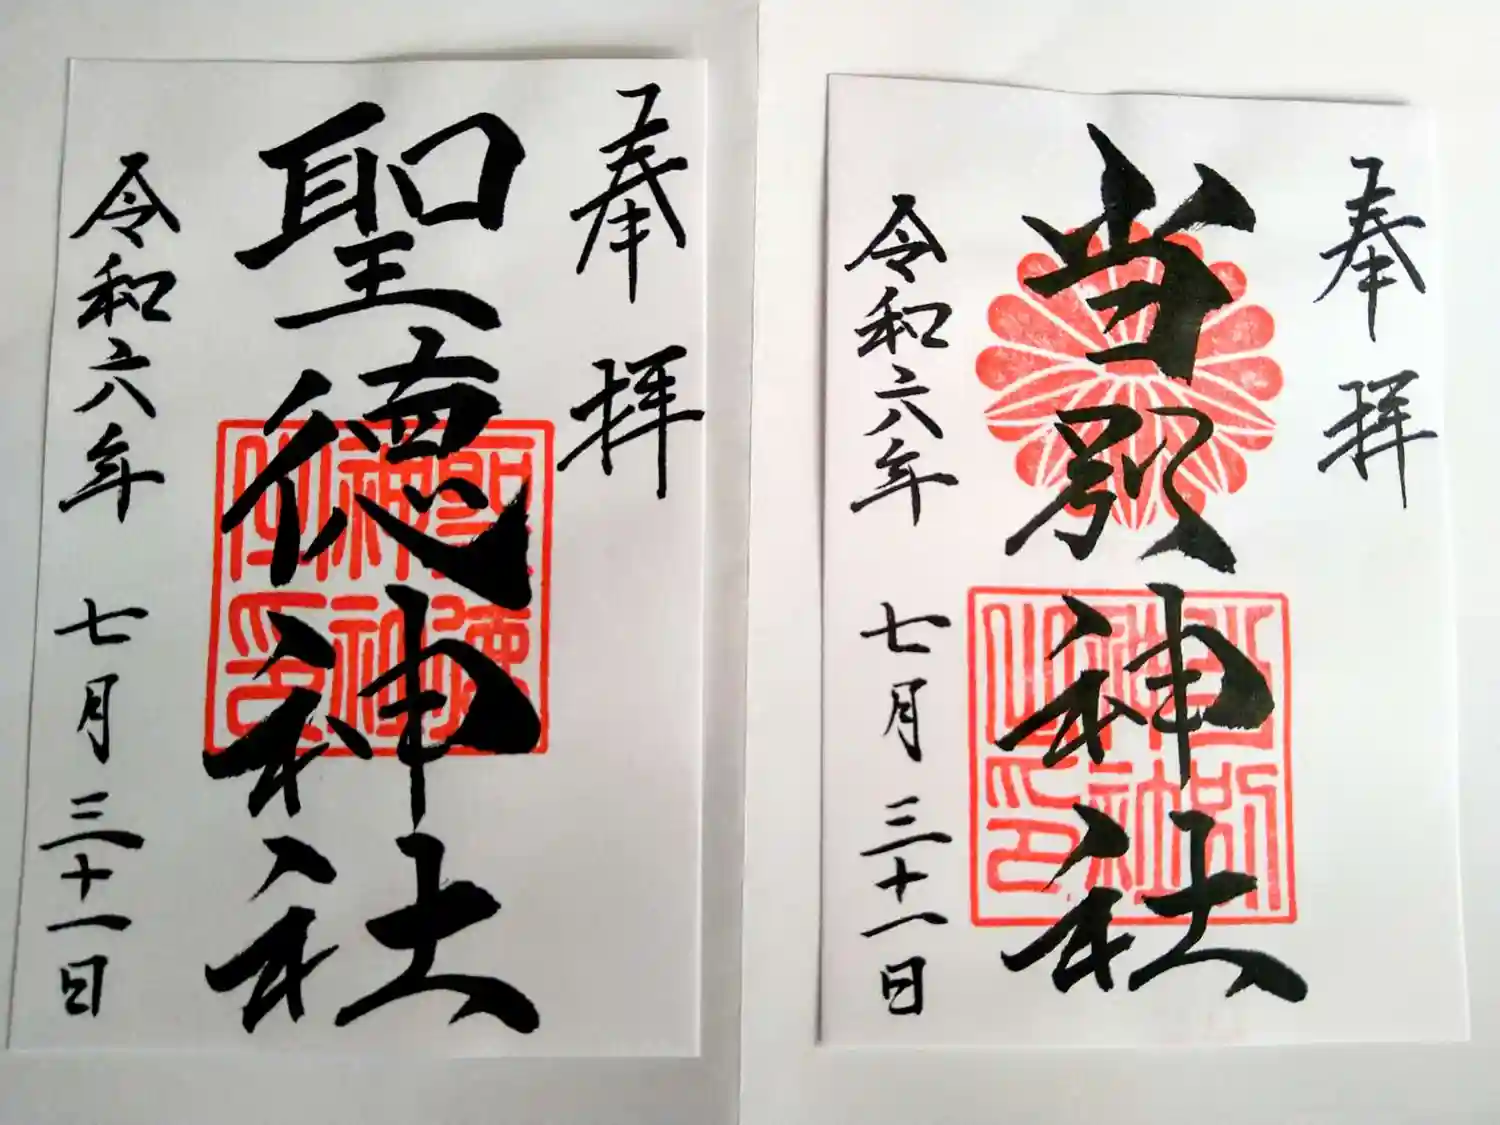 奉拝
当別神社
令和六年 七月 三十一日
奉拝
聖徳神社
聖徳
神社
之印
令和六年 七月 三十一日